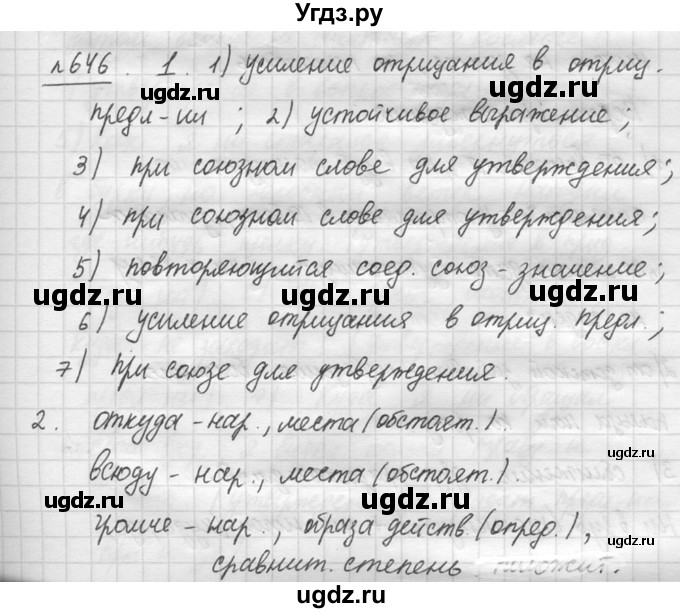 Угдз.ру
№646. 1. 1) усиление отрицания в отриц.
предл-ии ; 2) устойчивое выражение ;
3) при союзном слове для утверждения ;
4) при союзном слове для утверждения ;
ugdz.ru ugdz.ru
5) повторяющийся соед. союз - значение ;
ugdz.ru ugdz.ru
6) усиление отрицания в отриц. предл. ;
ugdz.ru
7) при союзе для утверждения.
2. откуда - нар., места (обстоят.).
ugdz.ru
всюду - нар., места (обстоят.).
ugdz.ru ugdz.ru
громче - нар., образа действ (опред.),
сравнит. степень
ugdz.ru ugdz.ru